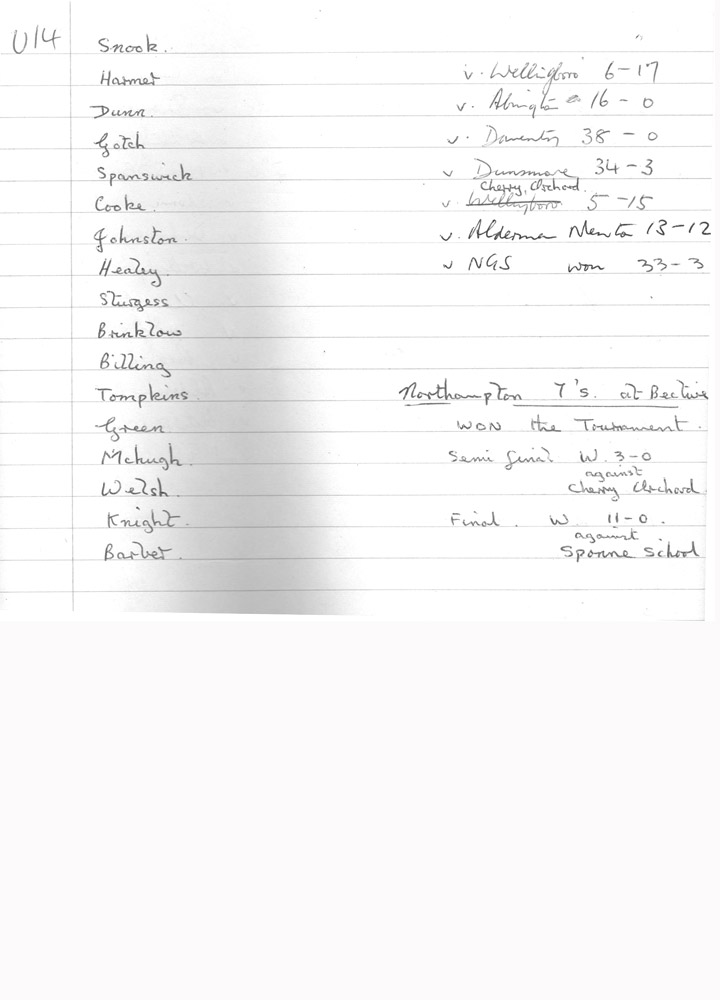 U14 Snook.
Harmer v. Wellingboro' 6-17
Dunn. v. Abington 16-0
Gotch v. Daventry 38-0
Spanswick v Dunsmore 34-3
Cherry Orchard.
Cooke. v. Wellingboro 5-15
Johnston. v. Alderman Newton 13-12
Healey v NGS won 33-3
Sturgess
Brinklow
Billing
Tompkins Northampton 7's. at Bective
Green WON the Tournament.
Mchugh. Semi final W. 3-0
against
Welsh. Cherry Orchard.
Knight. Final. W 11-0.
against.
Barber. Sponne School